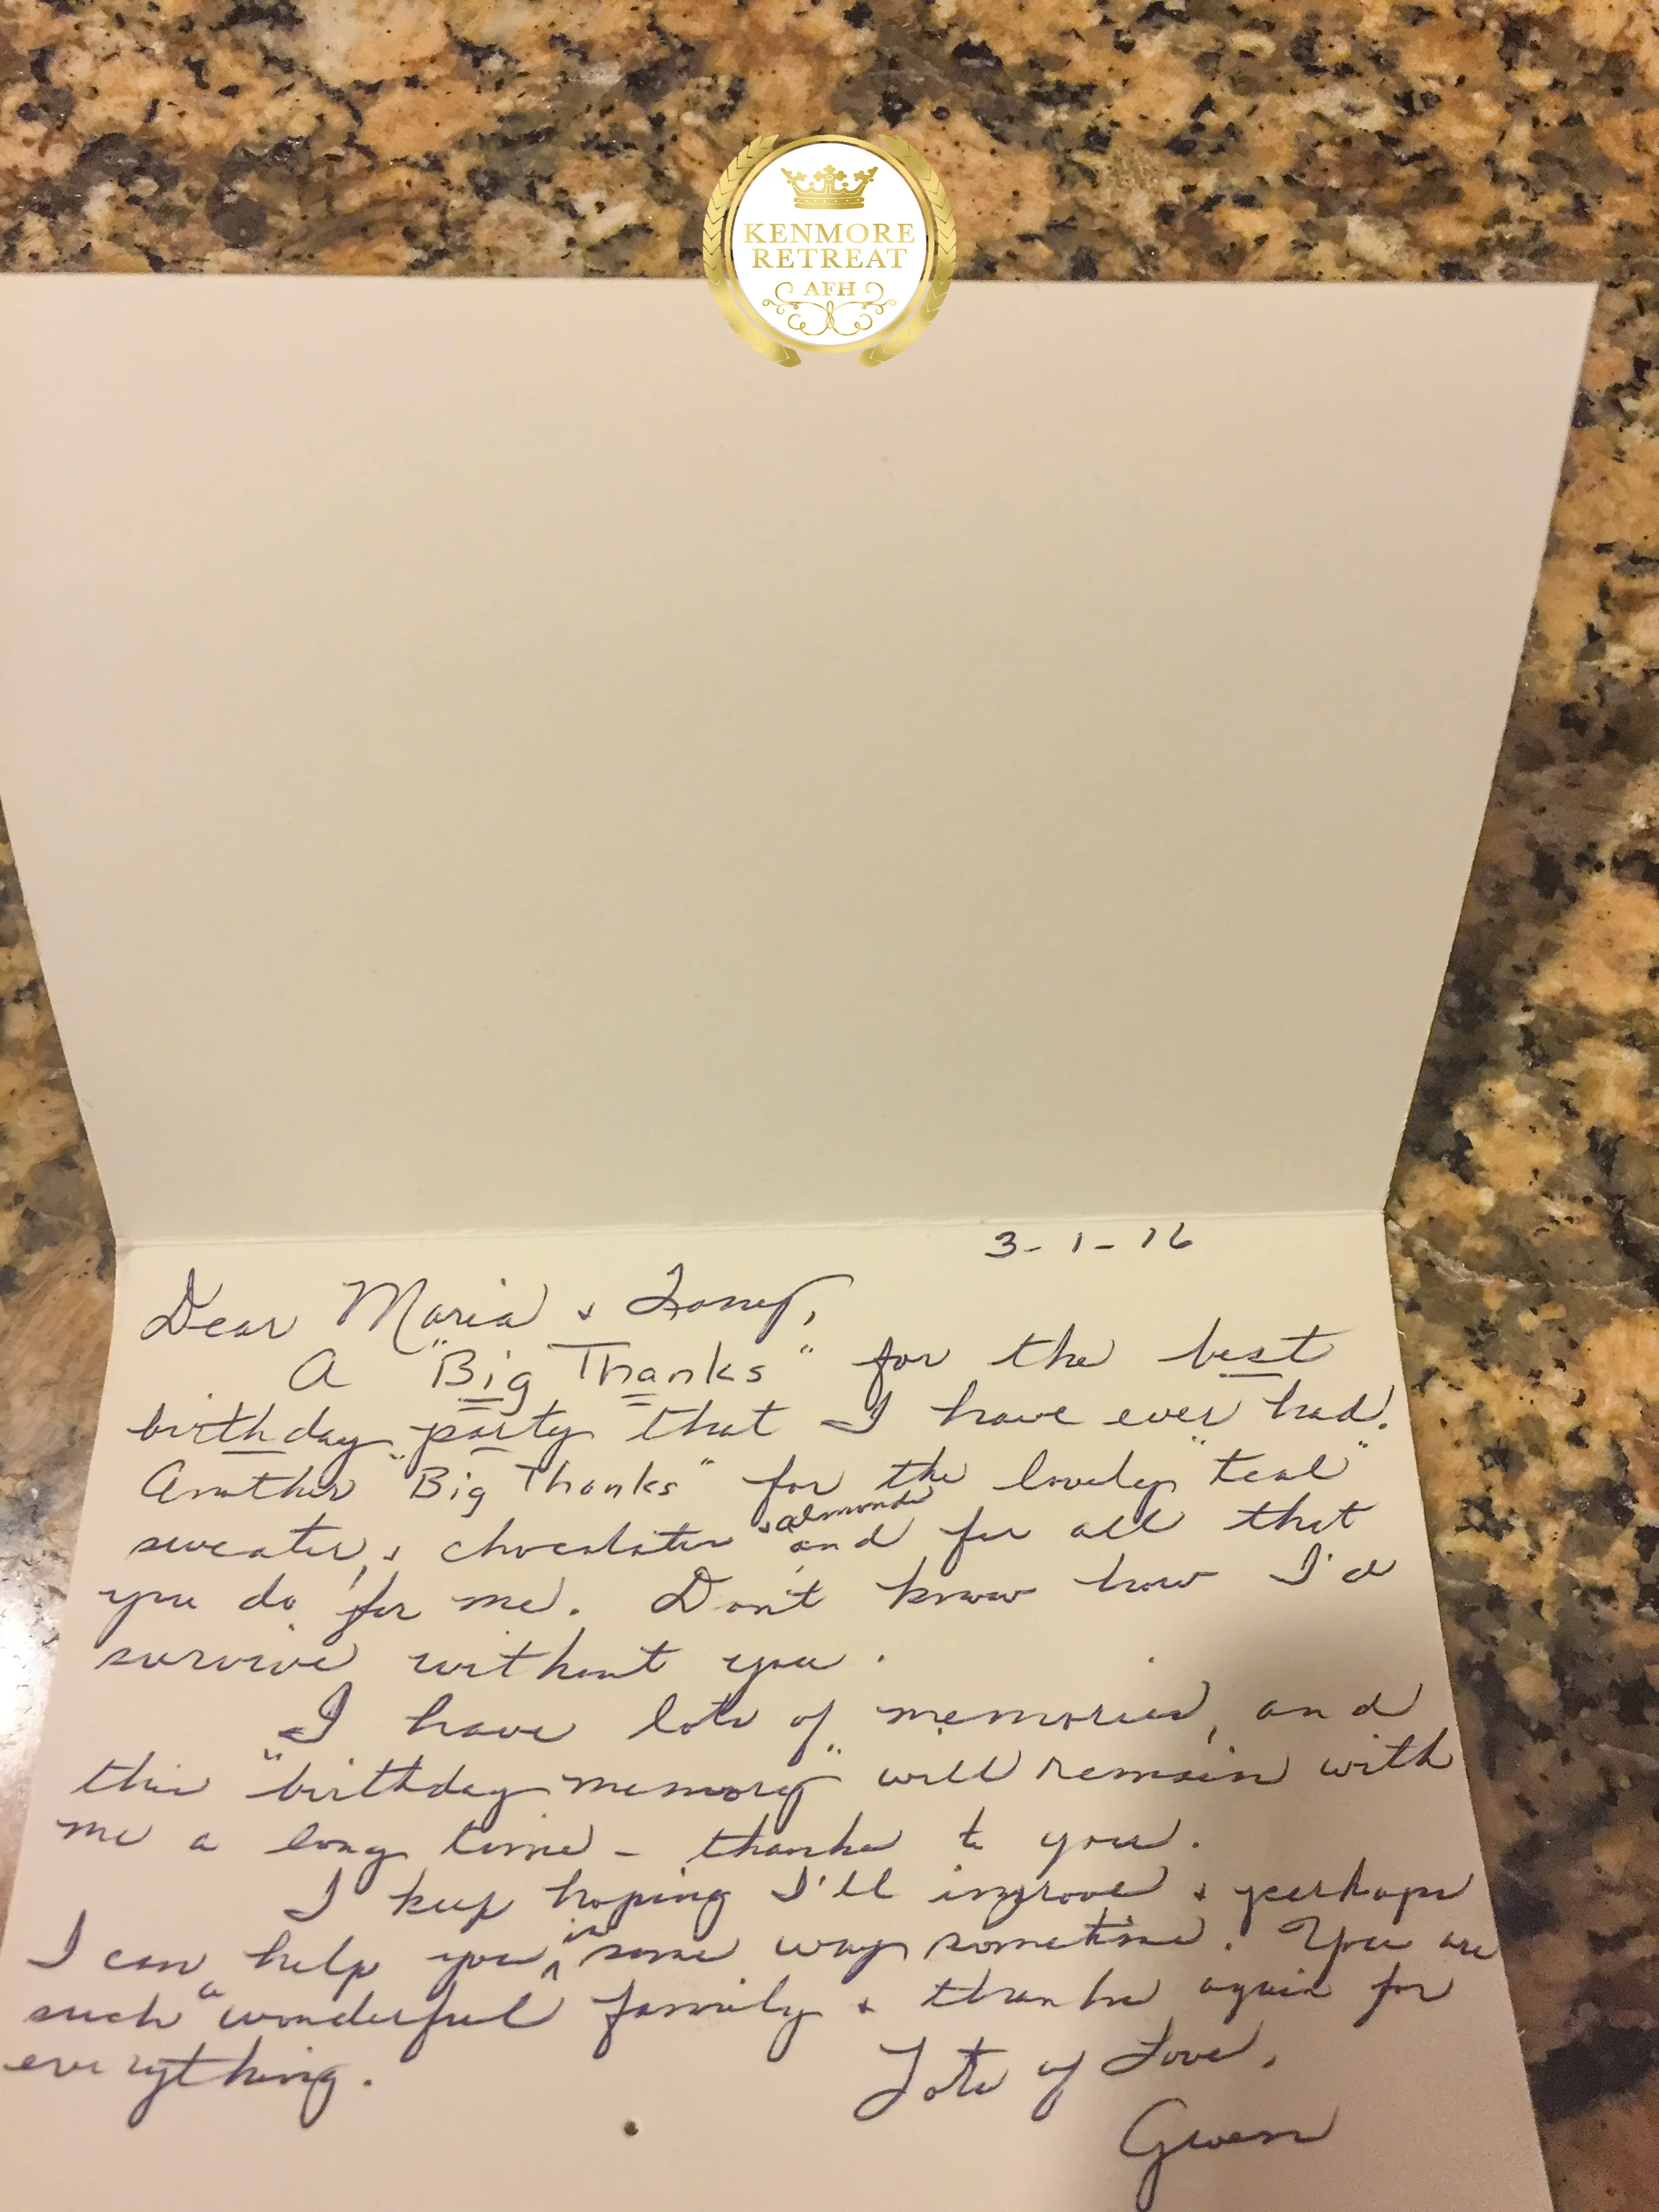 KENMORE
RETREAT
AFH
3-1-16
Dear Maria &
A "Big Thanks" for the best
birthday party that I have ever had!
Another "Big Thanks" for the lovely "teal"
sweater, & chocolates & almonds and for all that
you do for me. Don't know how I'd
survive without you.
I have lots of memories, and
this "birthday memory" will remain with
me a long time - thanks to you.
I keep hoping I'll improve & perhaps
I can help you in some way sometime. You are
such a wonderful family & thanks again for
everything.
Lots of Love,
Gwen